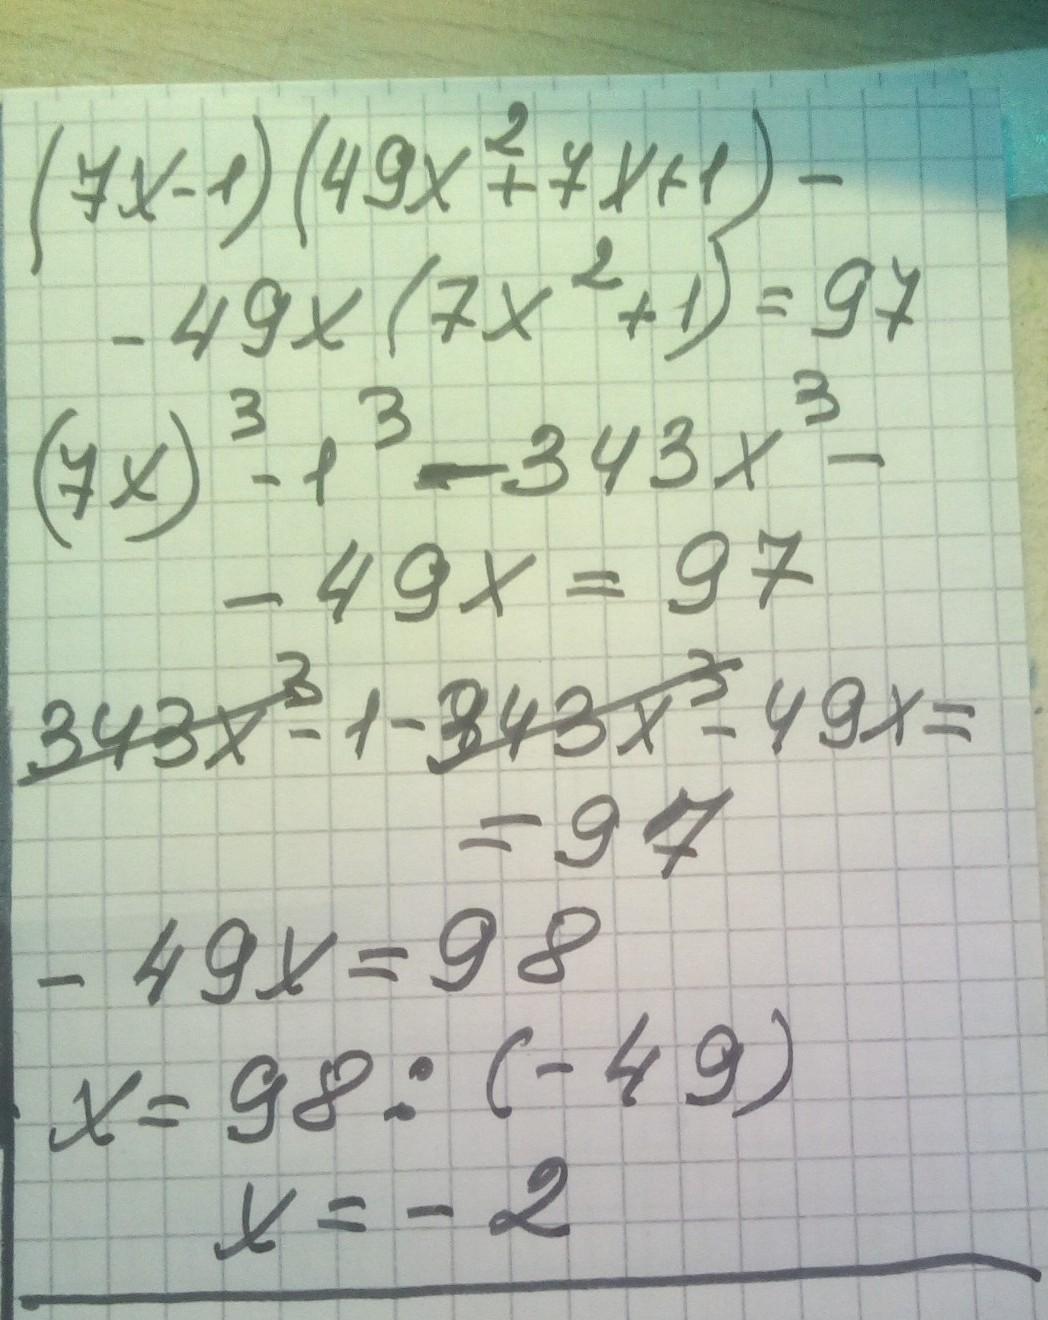 (7x-1)(49x²+7x+1)-
-49x(7x²+1)=97
(7x)³-1³-343x³-
-49x=97
343x³-1-343x³-49x=
=97
-49x=98
x=98:(-49)
x=-2